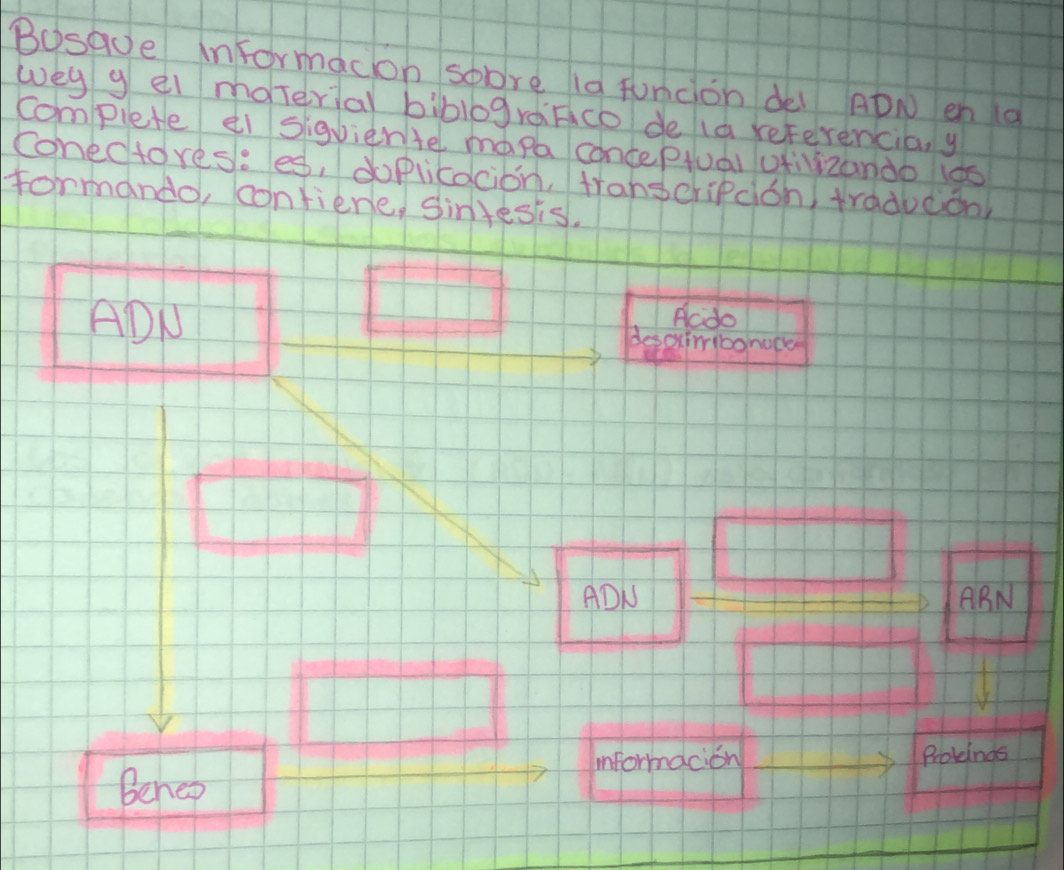 Busque información sobre la función del ADN en la
wey y el material biblografico de la referencia, y
Complete el siguiente mapa conceptual utilizando los
Conectores: es, duplicación, transcripción, tradución,
formando, contiene, sintesis.
ADN
Acido
ADN
ARN
Genes
información
Proteinas